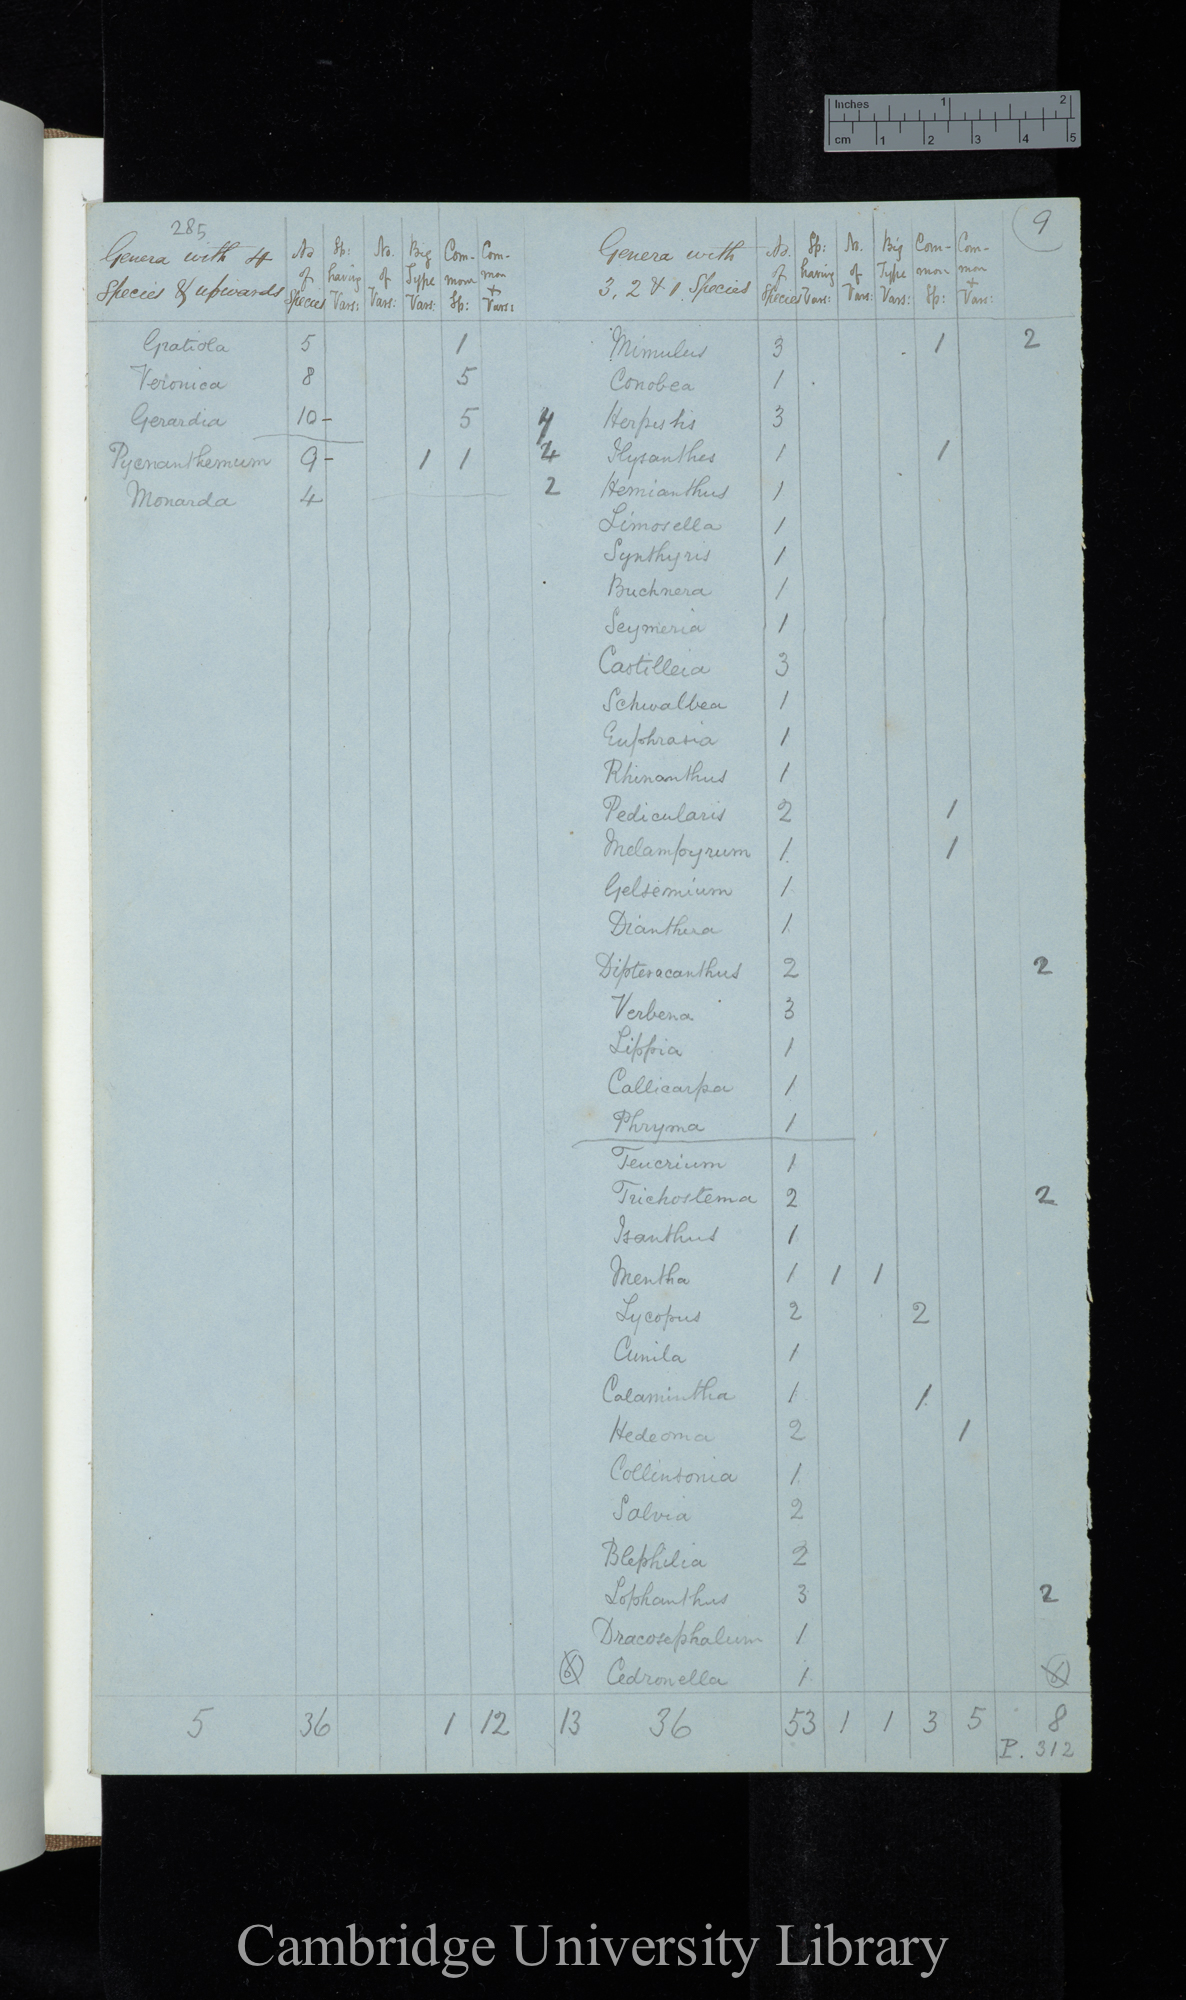 Inches 1 2
cm 1 2 3 4 5
285
9
Genera with 4 Species & upwards | No of Species | Sp: having Vars: | No. of Vars: | Big Type Vars: | Common Sp: | Common + Vars: | Genera with 3, 2 & 1 Species | No. of Species | Sp: having Vars: | No. of Vars: | Big Type Vars: | Common Sp: | Common + Vars:
Gratiola 5 1 Mimulus 3 1 2
Veronica 8 5 Conobea 1
Gerardia 10- 5 4 Herpestis 3
Pycnanthemum 9- 1 1 4 Ilysanthes 1 1
Monarda 4 2 Hemianthus 1
Limosella 1
Synthyris 1
Buchnera 1
Seymeria 1
Castilleia 3
Schwalbea 1
Euphrasia 1
Rhinanthus 1
Pedicularis 2 1
Melampyrum 1 1
Gelsemium 1
Dianthera 1
Dipteracanthus 2 2
Verbena 3
Lippia 1
Callicarpa 1
Phryma 1
Teucrium 1
Trichostema 2 2
Isanthus 1
Mentha 1 1 1
Lycopus 2 2
Cunila 1
Calamintha 1 1
Hedeoma 2 1
Collinsonia 1
Salvia 2
Blephilia 2
Lophanthus 3 2
Dracocephalum 1
Cedronella 1
5 36 1 12 13 36 53 1 1 3 5 8
P. 312
Cambridge University Library